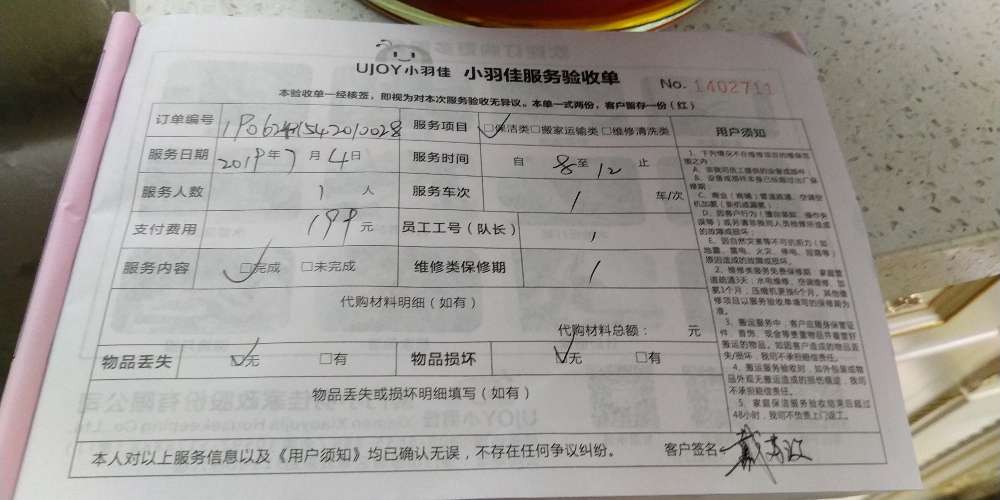 UJOY小羽佳 小羽佳服务验收单
No. 1402711
本验收单一经核签,即视为对本次服务验收无异议。本单一式两份,客户暂存一份(红)
订单编号
服务项目 □保洁类□搬家运输类□维修清洗类
服务日期 2019年7月4日 服务时间 自8至12止
服务人数 1人 服务车次 / 车/次
支付费用 199元 员工工号(队长) /
服务内容 □完成 □未完成 维修类保修期 /
代购材料明细(如有)
代购材料总额: 元
物品丢失 □无 □有 物品损坏 □无 □有
物品丢失或损坏明细填写(如有)
本人对以上服务信息以及《用户须知》均已确认无误,不存在任何争议纠纷。 客户签名
用户须知
1、下列情况不在维修项目的维保范
围之内
A、非我司员工提供的设备或部件
B、设备或部件本身已经超过出厂保
修期;
C、商业(商铺)管道疏通、空调空
机加氨(新机或漏氨)
D、因客户行为(擅自装卸、操作失
误等)或另请非我司人员检修所造成
的故障或损坏;
E、因自然灾害等不可抗拒力(如
地震、雷电、火灾、停电、短路等)
原因造成的故障或损坏。
2、维修类服务免费保修期:家庭管
道疏通3天;水电维修、空调维修、加
氨1个月,压缩机更换6个月。其他维
修项目以服务验收单填写的保修期为
准。
3、搬运服务中,客户应随身保管证
件、首饰、现金等贵重物品并看管好
搬运的物品。如因客户造成的物品丢
失/损坏,我司不承担赔偿责任。
4、搬运服务验收时,如外包装或物
品外观无搬运造成的损伤痕迹,我司
不承担赔偿责任。
5、家庭保洁服务验收结束后超过
48小时,我司不负责上门返工。